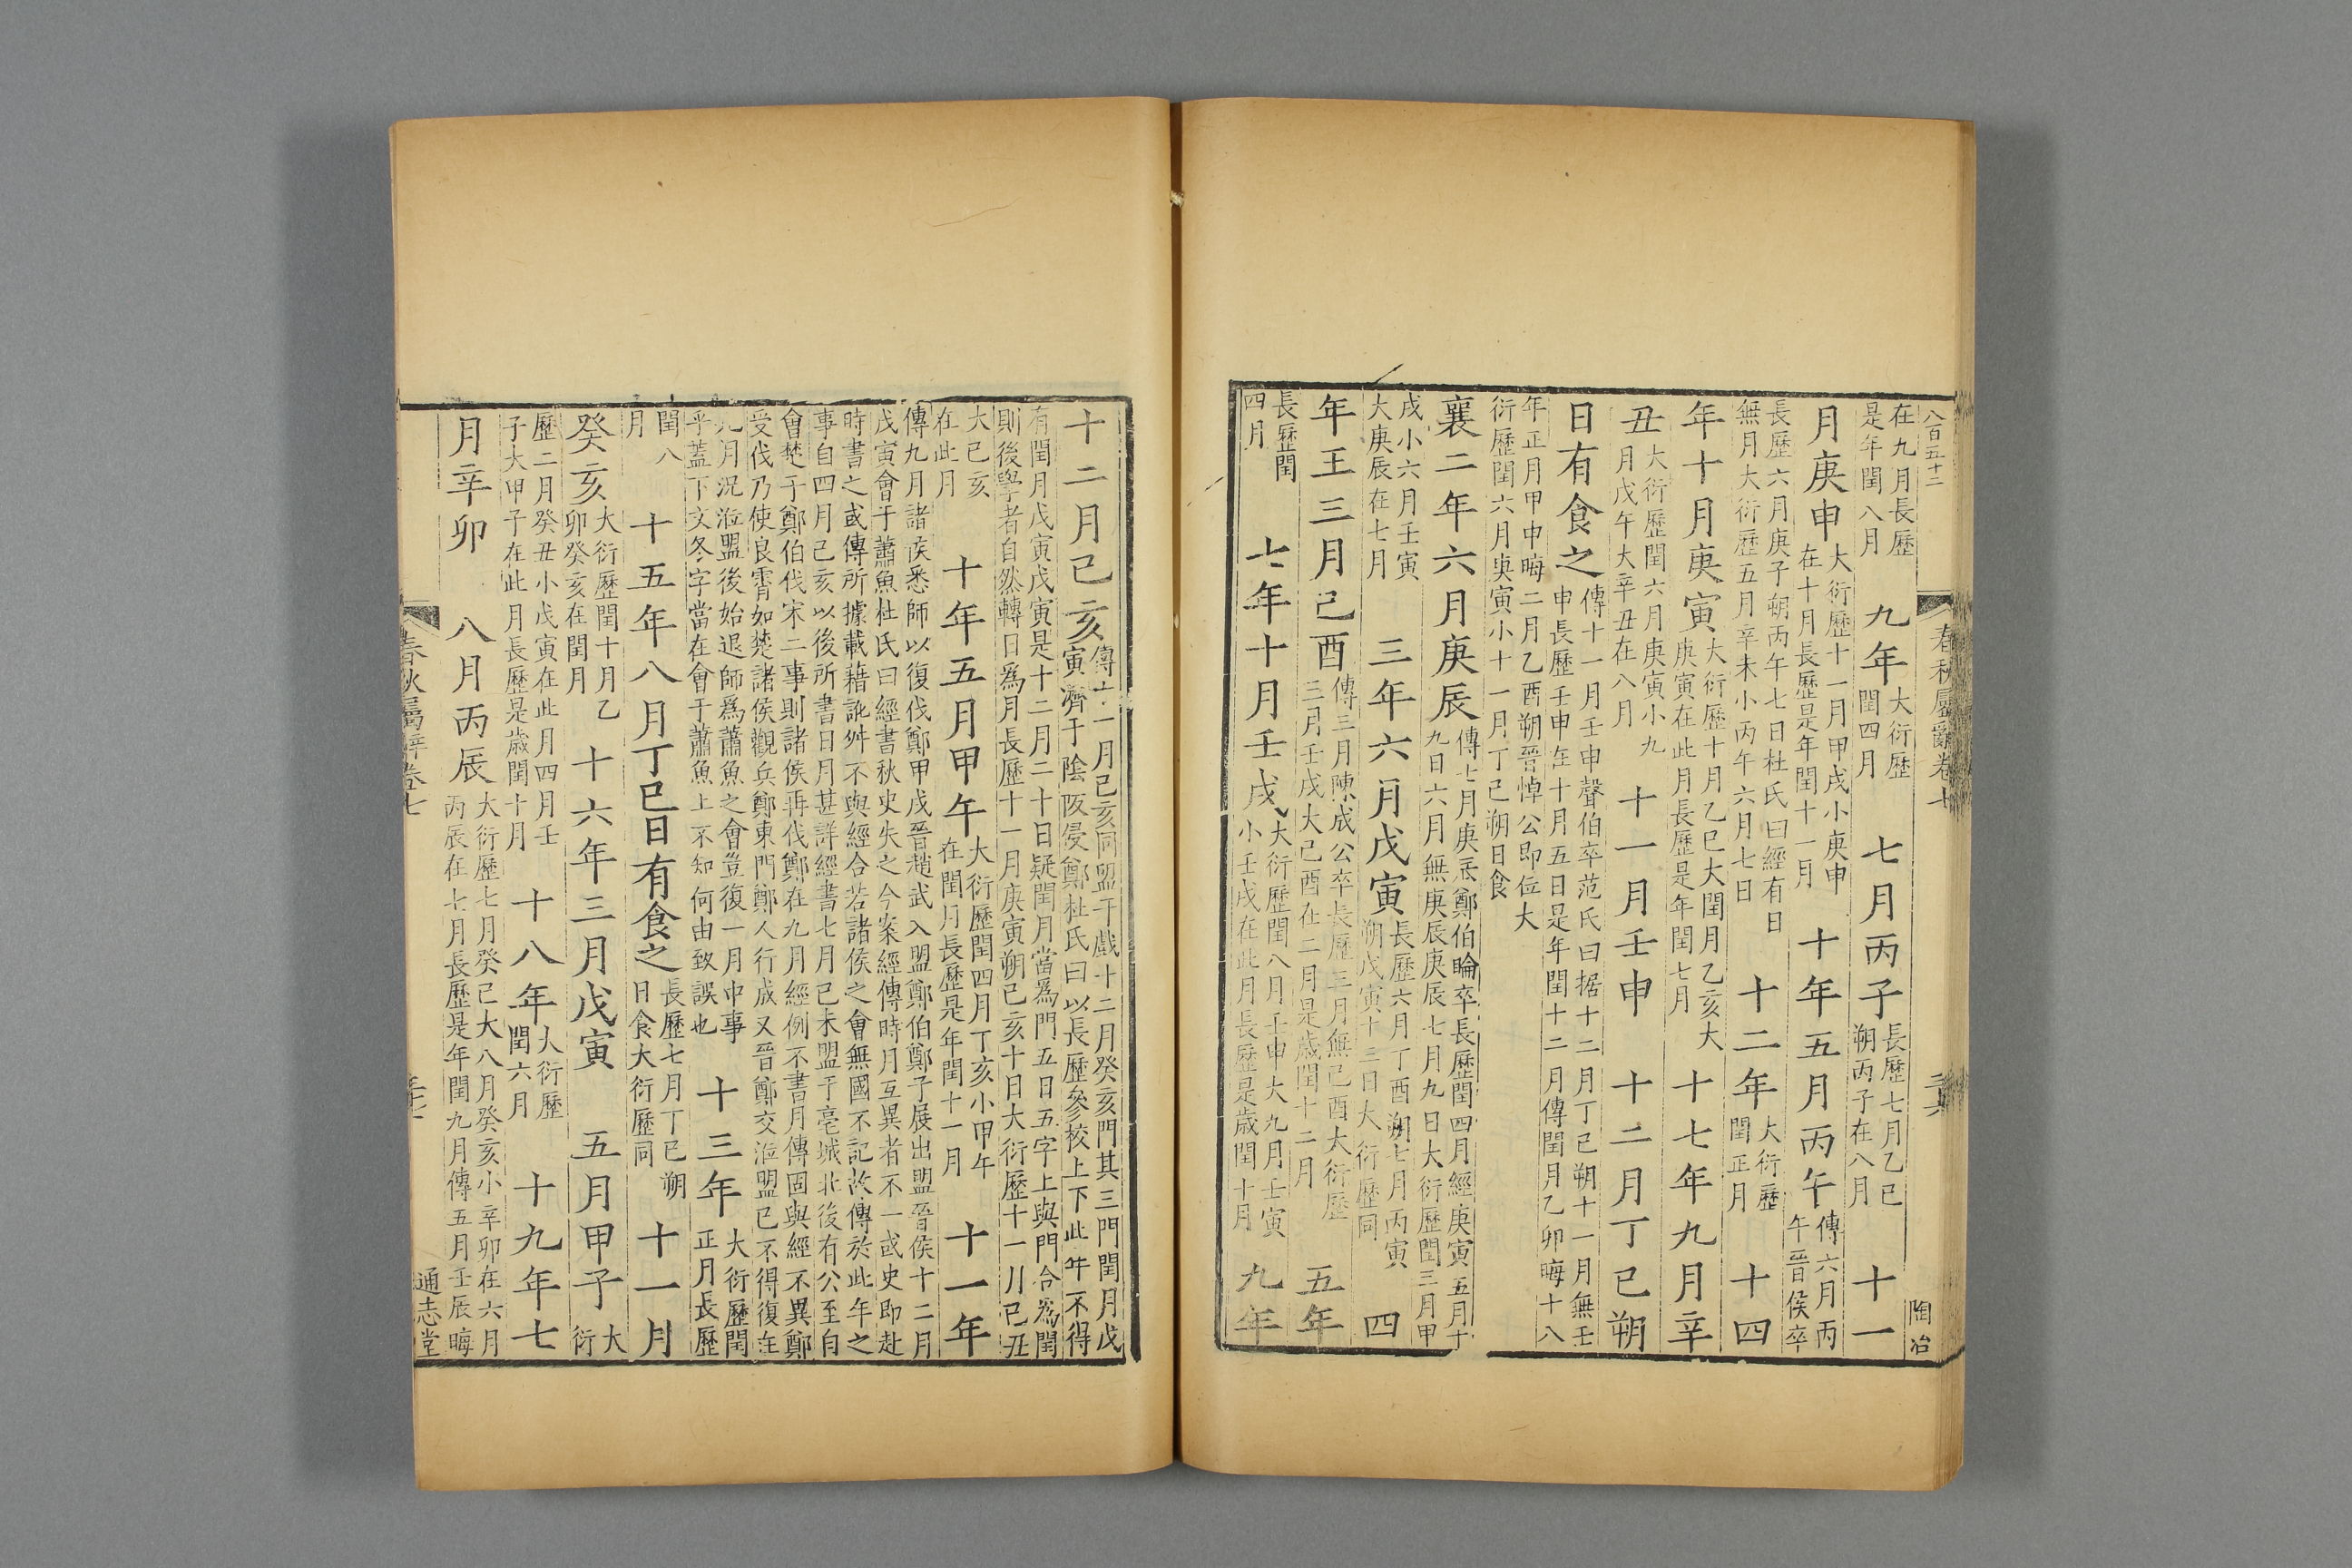 八百五十二 春秋屬辭卷七 三十六 陶冶
在九月長歷是年閏八月 九年大衍歷閏四月 七月丙子長歷七月乙巳朔丙子在八月 十一
月庚申大衍歷十一月甲戌小庚申在十月長歷是年閏十一月 十年五月丙午傳六月丙午晉侯卒
長歷六月庚子朔丙午七日杜氏曰經有日無月大衍歷五月辛未小丙午六月七日 十二年大衍歷閏正月 十四
年十月庚寅大衍歷十月乙巳大閏月乙亥大庚寅在此月長歷是年閏七月 十七年九月辛
丑大衍歷閏六月庚寅小九月戊午大辛丑在八月 十一月壬申 十二月丁巳朔
日有食之傳十一月壬申聲伯卒范氏曰据十二月丁巳朔十一月無壬申長歷壬申在十月五日是年閏十二月傳閏月乙卯晦十八
年正月甲申晦二月乙酉朔晉悼公即位大衍歷閏六月庚寅小十一月丁巳朔日食
襄二年六月庚辰傳七月庚辰鄭伯睔卒長歷閏四月經庚寅五月十九日六月無庚辰庚辰七月九日大衍歷閏三月甲
戌小六月壬寅大庚辰在七月 三年六月戊寅長歷六月丁酉朔七月丙寅朔戊寅十三日大衍歷同 四
年王三月己酉傳三月陳成公卒長歷三月無己酉大衍歷三月壬戌大己酉在二月是歲閏十二月 五年
長歷閏四月 七年十月壬戌大衍歷閏八月壬申大九月壬寅小壬戌在此月長歷是歲閏十月 九年
十二月己亥傳十一月己亥同盟于戲十二月癸亥門其三門閏月戊寅濟于陰阪侵鄭杜氏曰以長歷參校上下此年不得
有閏月戊寅戊寅是十二月二十日疑閏月當爲門五日五字上與門合爲閏則後學者自然轉日爲月長歷十一月庚寅朔己亥十日大衍歷十一月己丑
大己亥在此月 十年五月甲午大衍歷閏四月丁亥小甲午在閏月長歷是年閏十一月 十一年
傳九月諸侯悉師以復伐鄭甲戌晉趙武入盟鄭伯鄭子展出盟晉侯十二月戊寅會于蕭魚杜氏曰經書秋史失之今案經傳時月互異者不一或史即赴
時書之或傳所據載藉訛舛不與經合若諸侯之會無國不記故傳於此年之事自四月己亥以後所書日月甚詳經書七月己未盟于亳城北後有公至自
會楚子鄭伯伐宋二事則諸侯再伐鄭在九月經例不書月傳固與經不異鄭受伐乃使良霄如楚諸侯觀兵鄭東門鄭人行成又晉鄭交涖盟已不得復在
九月況涖盟後始退師爲蕭魚之會豈復一月中事乎蓋下文冬字當在會于蕭魚上不知何由致誤也 十三年大衍歷閏正月長歷
閏八月 十五年八月丁巳日有食之長歷七月丁巳朔日食大衍歷同 十一月
癸亥大衍歷閏十月乙卯癸亥在閏月 十六年三月戊寅 五月甲子大衍
歷二月癸丑小戊寅在此月四月壬子大甲子在此月長歷是歲閏十月 十八年大衍歷閏六月 十九年七
月辛卯 八月丙辰大衍歷七月癸巳大八月癸亥小辛卯在六月丙辰在七月長歷是年閏九月傳五月壬辰晦
春秋屬辭卷七 三十七 通志堂